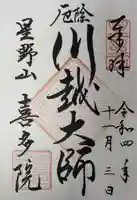 奉拝
令和四年十一月三日
厄除
川越大師
星野山
喜多院